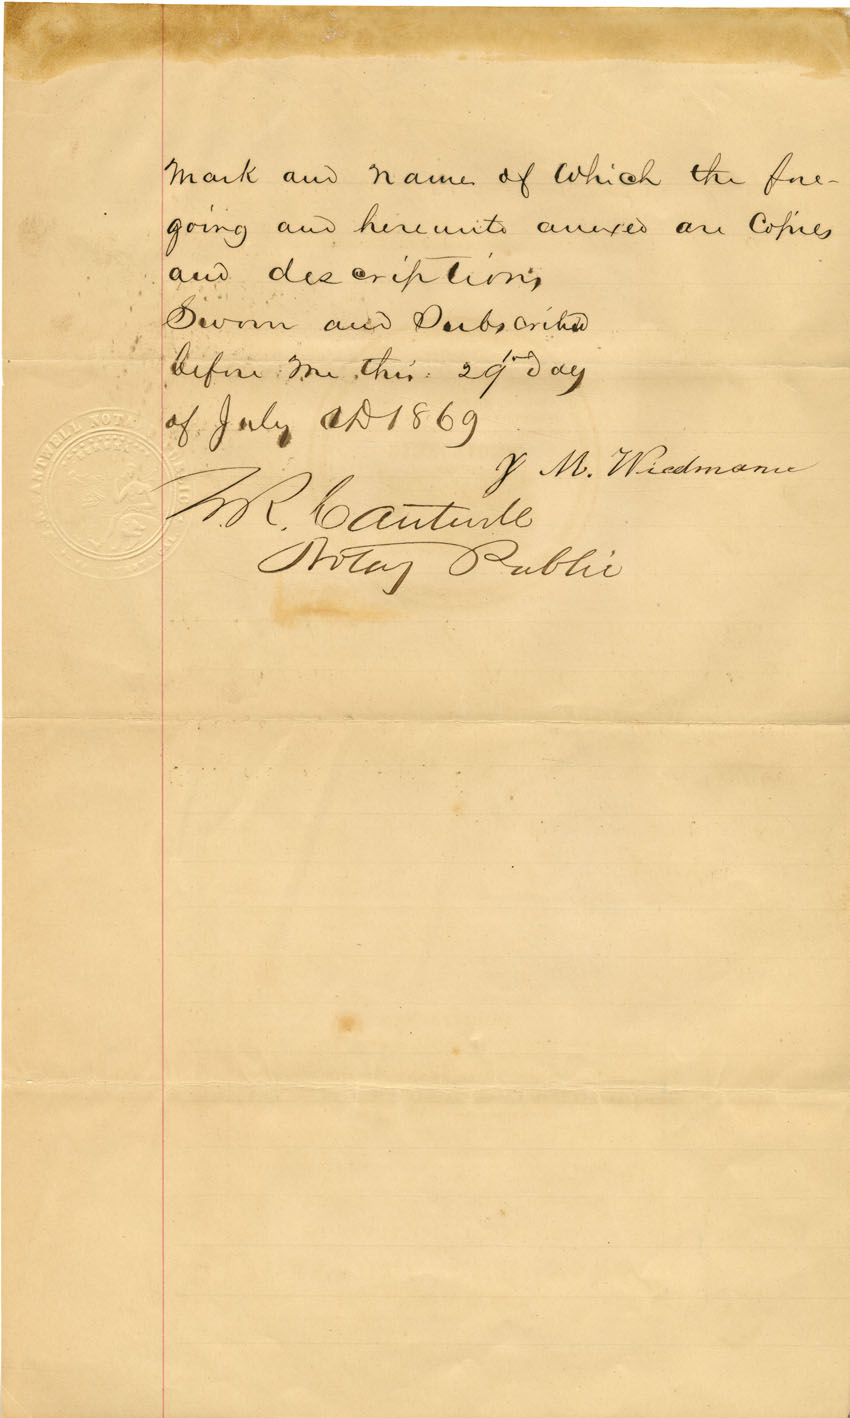 Mark and Name of Which the fore-
going and hereunto anexed are Copies
and descriptions,
Sworn and Subscribed
before Me this 29th Day
of July AD 1869
M. Wiedmann
W.R. Cantwell
Notay Public
CANTWELL NOT